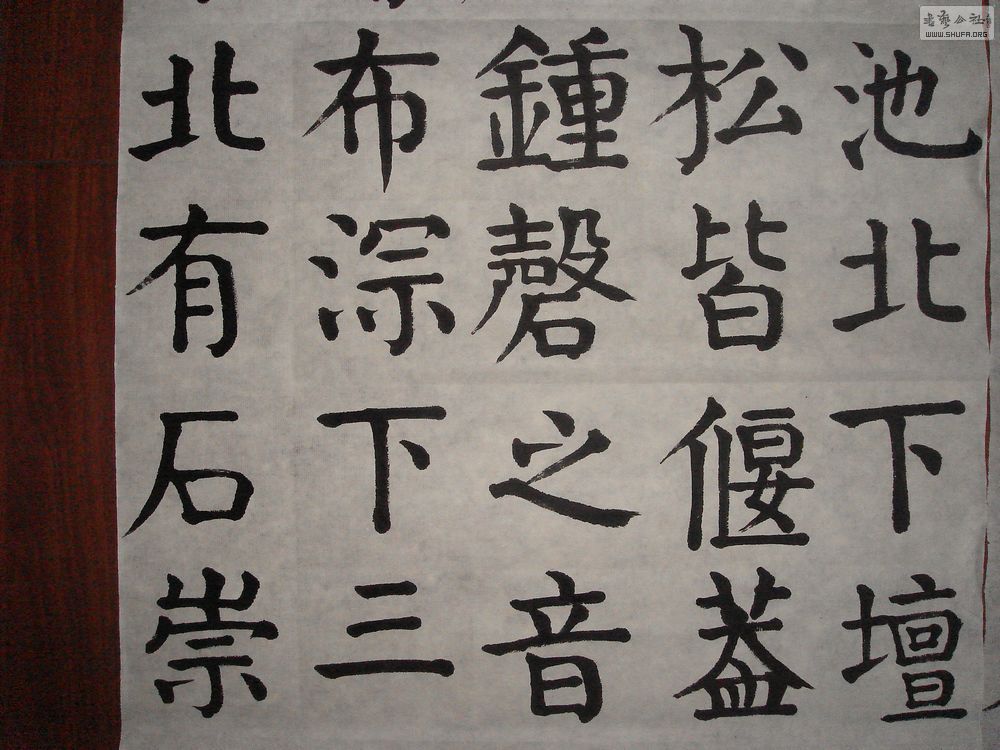 池北下壇
松皆偃蓋
鍾磬之音
布淙下三
北有石崇
WWW.SHUFA.ORG